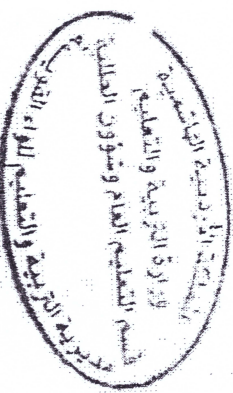 المملكة الأردنية الهاشمية
وزارة التربية والتعليم
قسم التعليم العام وشؤون الطلبة
مديرية التربية والتعليم للواء القويسمة